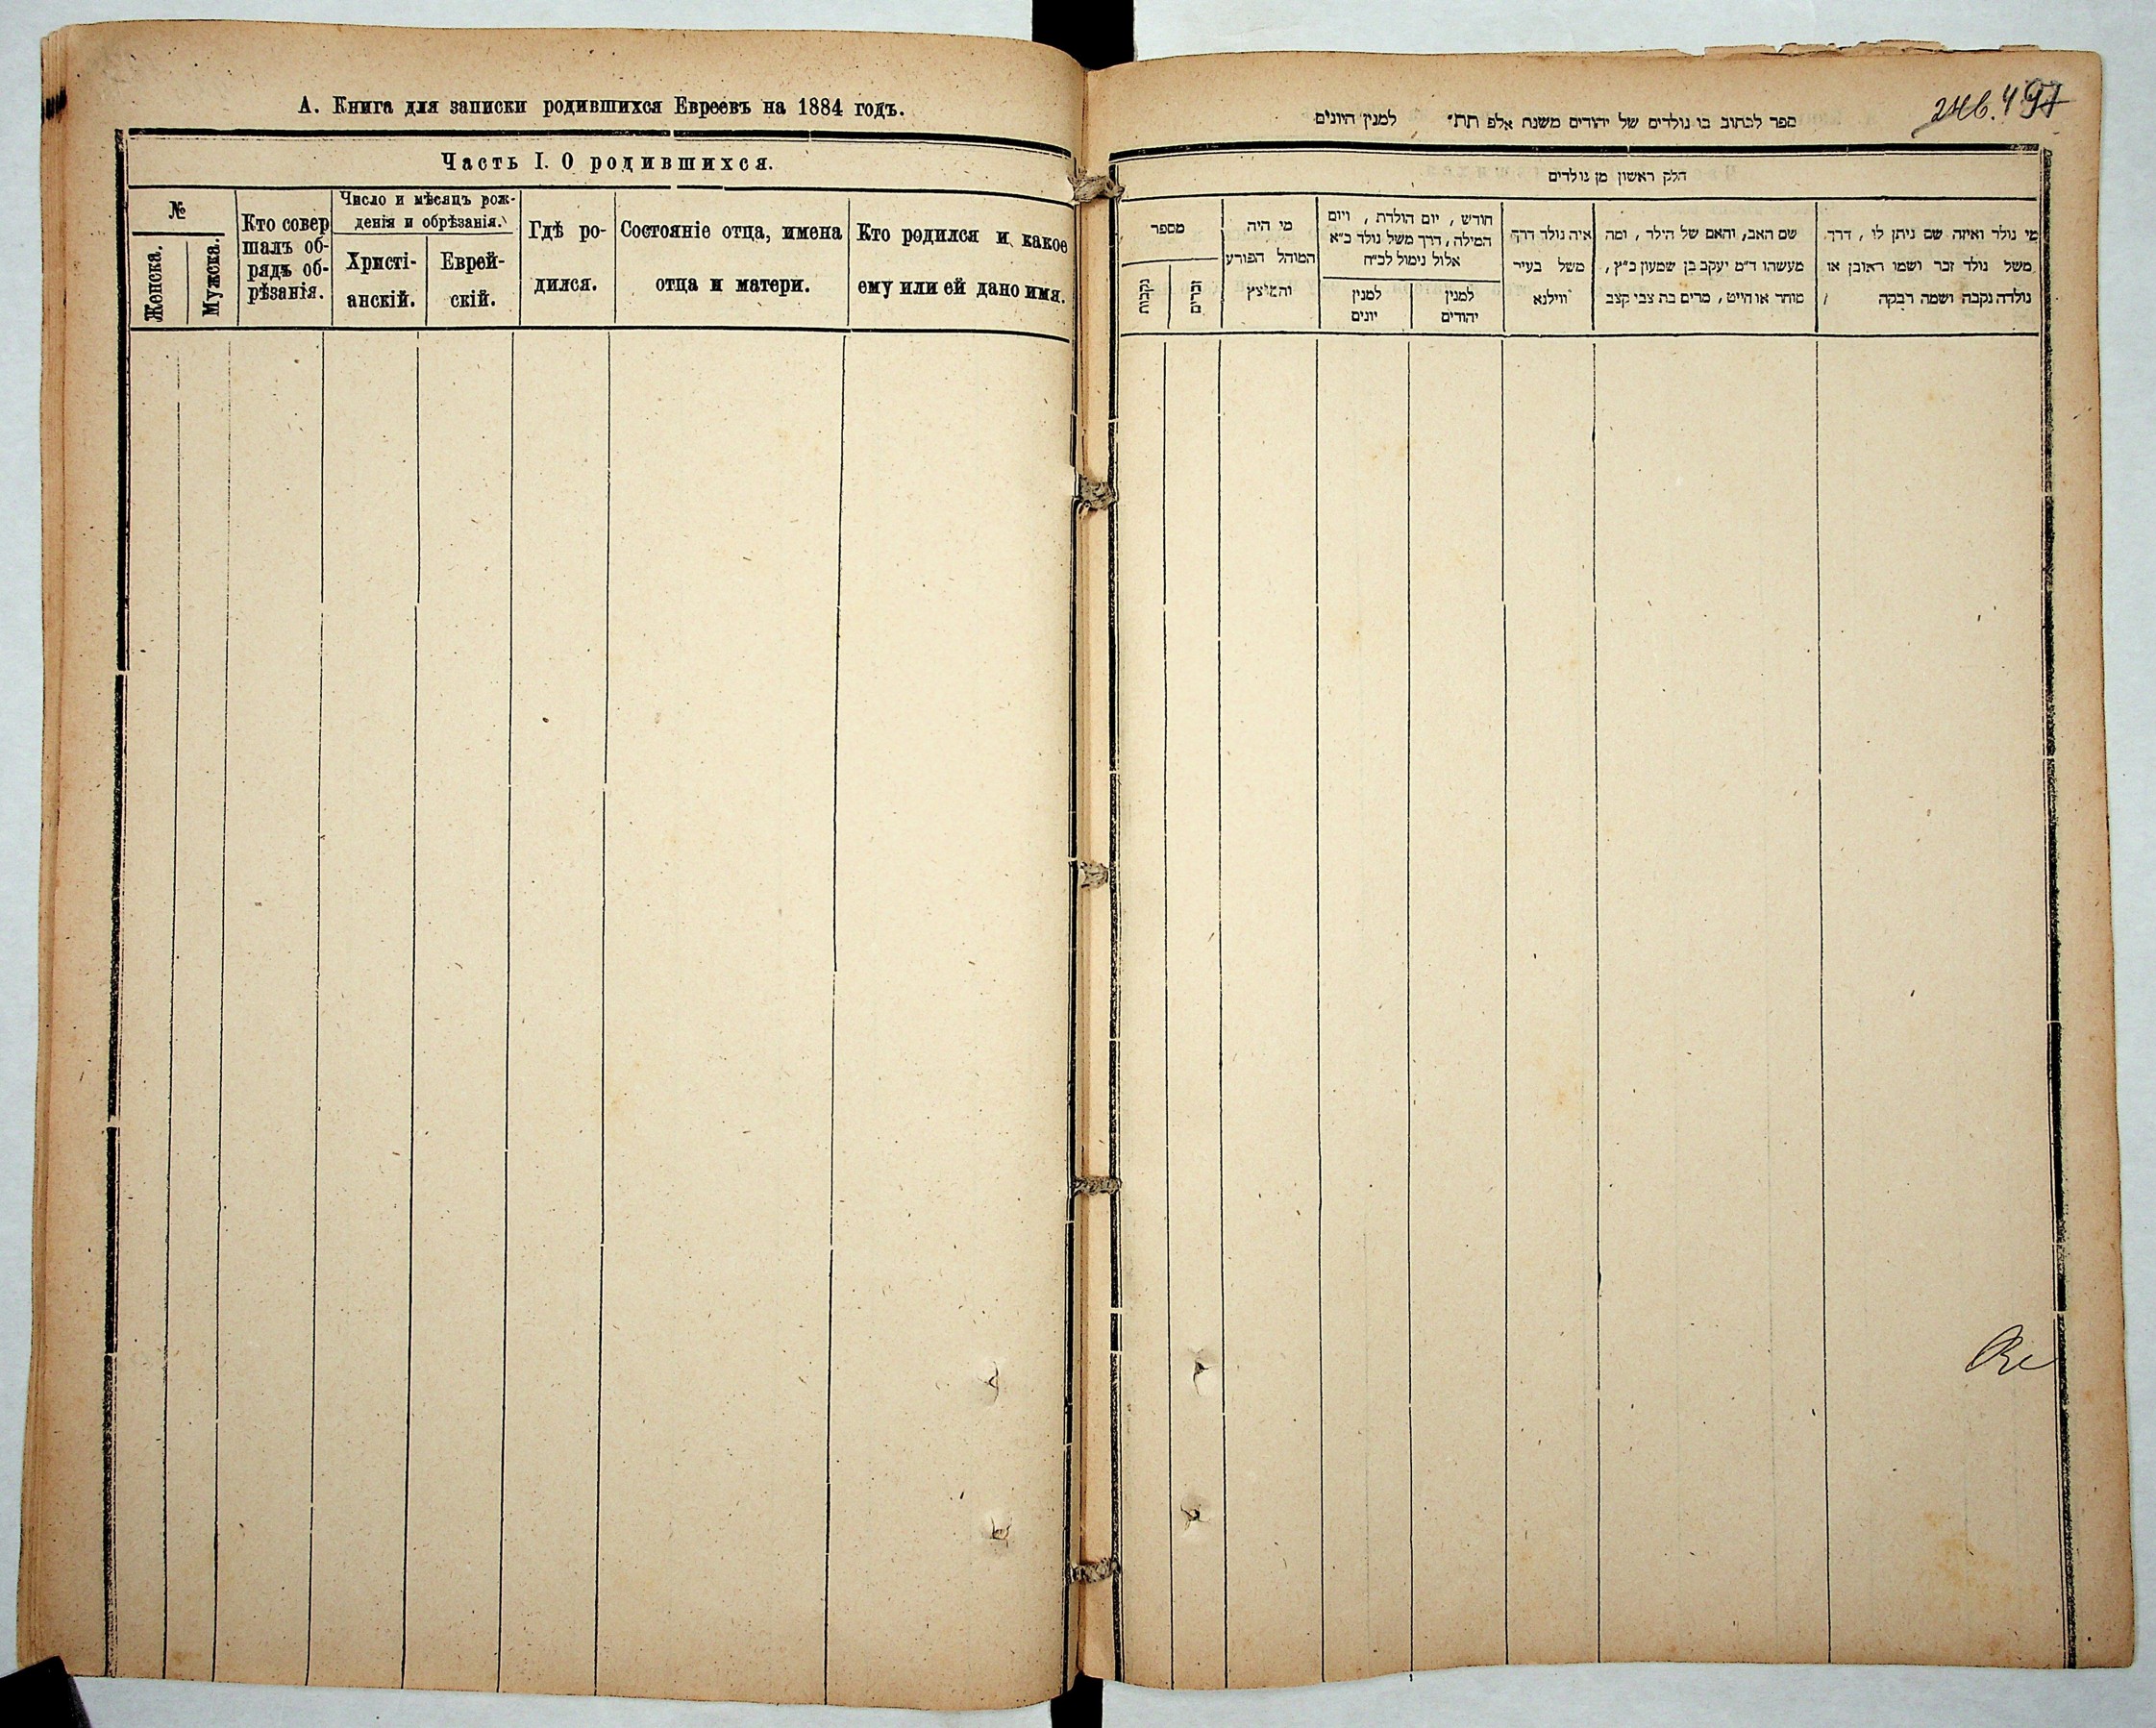 А. Книга для записки родившихся Евреевъ на 1884 годъ.
Часть I. О родившихся.
№
Женска.
Мужска.
Кто совер
шалъ об-
рядъ об-
рѣзанія.
Число и мѣсяцъ рож-
денія и обрѣзанія.
Христі-
анскій.
Еврей-
скій.
Гдѣ ро-
дился.
Состояніе отца, имена
отца и матери.
Кто родился и какое
ему или ей дано имя.
246.
ספר לכתוב בו נולדים של יהודים משנת אלפ תת״ למנין היונים
חלק ראשון מן נולדים
מי נולד ואיזה שם ניתן לו, דרך
משל נולד זכר ושמו ראובן או
נולדה נקבה ושמה רבקה
שם האב, והאם של הילד, ומה
מעשהו ד״מ יעקב בן שמעון כ״ץ,
סוחר או חייט, מרים בת צבי קצב
איה נולד דרך
משל בעיר
ווילנא
חודש, יום הולדת, ויום
המילה, דרך משל נולד כ״א
אלול נימול לכ״ח
למנין
יהודים
למנין
יונים
מי היה
המוהל הפורע
והמוצץ
מספר
זכרים
נקבות